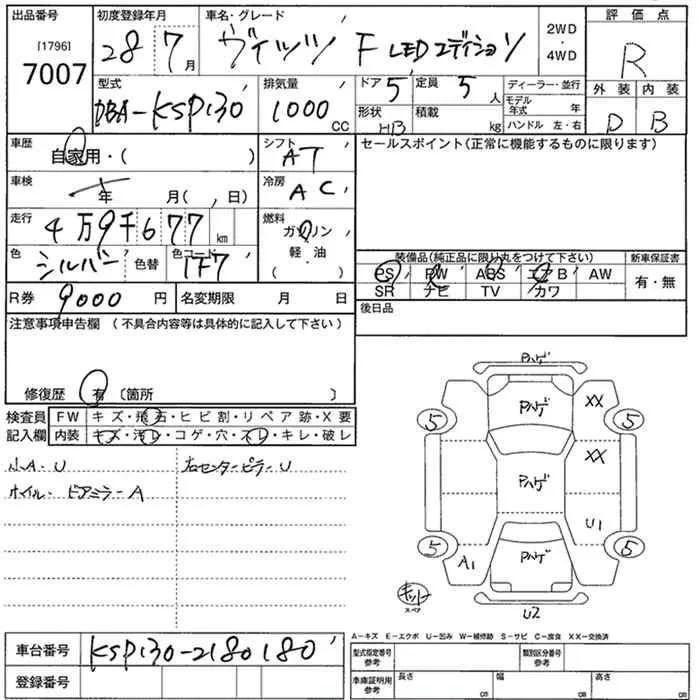 出品番号 初度登録年月 車名・グレード 2WD ・ 4WD 評価点
[1796]
7007 28 7月 ヴィッツ F LEDエディション R
型式 排気量 ドア 定員 ディーラー・並行 外装 内装
DBA-KSP130 1000 CC 5 5人 モデル年式 年
形状 HB 積載 kg ハンドル 左・右 D B
車歴 自家用・( ) シフト AT セールスポイント(正常に機能するものに限ります)
車検 年 月( 、 日) 冷房 AC
走行 4万9千677 km 燃料 ガソリン
色 シルバー 色替 色コード 1F7 軽・油 ( )
装備品(純正品に限り丸をつけて下さい) 新車保証書
PS PW ABS エアB AW 有・無
SR ナビ TV カワ
R券 9000円 名変期限 月 日 後日品
注意事項申告欄 (不具合内容等は具体的に記入して下さい)
修復歴 有 〔箇所 〕
検査員 FW キズ・飛石・ヒビ割・リペア跡・X要
記入欄 内装 キズ・汚レ・コゲ・穴・スレ・キレ・破レ
小A・U 右センターピラーU
ホイル・ドアミラーA
Pハゲ
Pハゲ XX
5 5
Pハゲ XX
U1
5 A1 Pハゲ 5
キット
スペア
U2
A-キズ E-エクボ U-凹み W-補修跡 S-サビ C-腐食 XX-交換済
車台番号 KSP130-2180180
登録番号
型式指定番号 参考 類別区分番号 参考
車庫証明用 参考 長さ cm 幅 cm 高さ cm